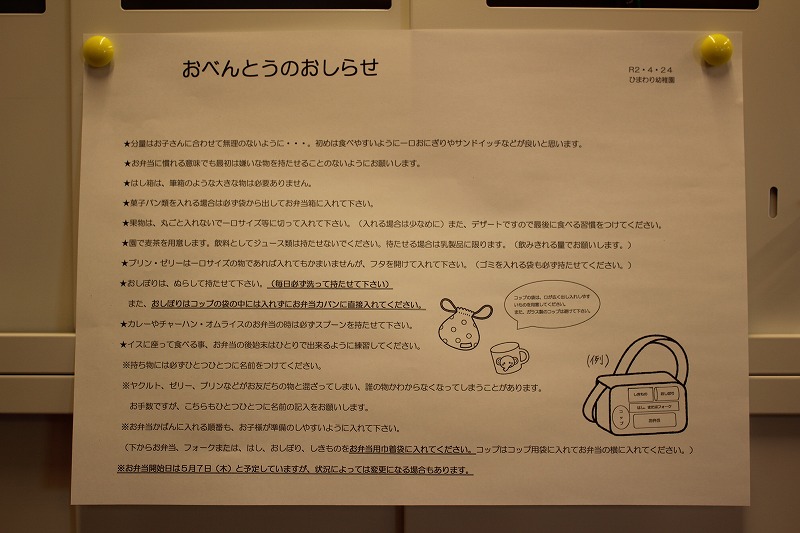 おべんとうのおしらせ
R2・4・24
ひまわり幼稚園
★分量はお子さんに合わせて無理のないように・・・。初めは食べやすいように一口おにぎりやサンドイッチなどが良いと思います。
★お弁当に慣れる意味でも最初は嫌いな物を持たせることのないようにお願いします。
★はし箱は、筆箱のような大きな物は必要ありません。
★菓子パン類を入れる場合は必ず袋から出してお弁当箱に入れて下さい。
★果物は、丸ごと入れないで一口サイズ等に切って入れて下さい。（入れる場合は少なめに）また、デザートですので最後に食べる習慣をつけてください。
★園で麦茶を用意します。飲料としてジュース類は持たせないでください。持たせる場合は乳製品に限ります。（飲みきれる量でお願いします。）
★プリン・ゼリーは一口サイズの物であれば入れてもかまいませんが、フタを開けて入れて下さい。（ゴミを入れる袋も必ず持たせてください。）
★おしぼりは、ぬらして持たせて下さい。（毎日必ず洗って持たせて下さい）
また、おしぼりはコップの袋の中には入れずにお弁当カバンに直接入れてください。
★カレーやチャーハン・オムライスのお弁当の時は必ずスプーンを持たせて下さい。
★イスに座って食べる事、お弁当の後始末はひとりで出来るように練習してください。
コップの袋は、口が広く出し入れしやす
いものを用意してください。
また、ガラス製のコップは避けて下さい。
※持ち物には必ずひとつひとつに名前をつけてください。
※ヤクルト、ゼリー、プリンなどがお友だちの物と混ざってしまい、誰の物かわからなくなってしまうことがあります。
お手数ですが、こちらもひとつひとつに名前の記入をお願いします。
(例)
しきもの
おしぼり
はし、またはフォーク
お弁当
コップ
※お弁当かばんに入れる順番も、お子様が準備のしやすいように入れて下さい。
（下からお弁当、フォークまたは、はし、おしぼり、しきものをお弁当用巾着袋に入れてください。コップはコップ用袋に入れてお弁当の横に入れてください。）
※お弁当開始日は５月７日（木）と予定していますが、状況によっては変更になる場合もあります。